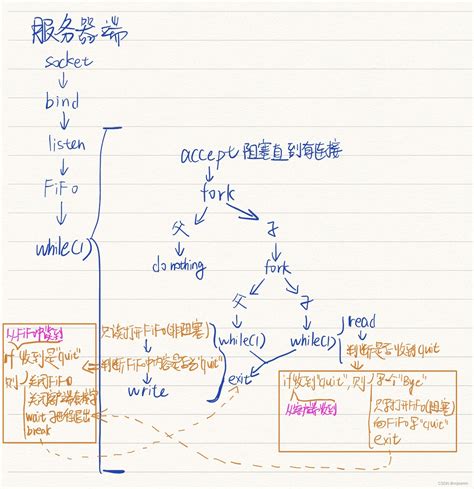 服务器端
socket
bind
listen
FiFo
while(1)
accept 阻塞直到有连接
fork
父 子
do nothing
fork
父 子
while(1) while(1)
只读打开FiFo(非阻塞)
判断FiFo中内容是否为"quit"
write
exit
read
判断是否收到quit
从FiFo中收到
if 收到是"quit"
则 关闭FiFo
wait
break
if收到"quit",则 写一个"Bye"
从客户端收到
只写打开FiFo(阻塞)
向FiFo写"quit"
exit